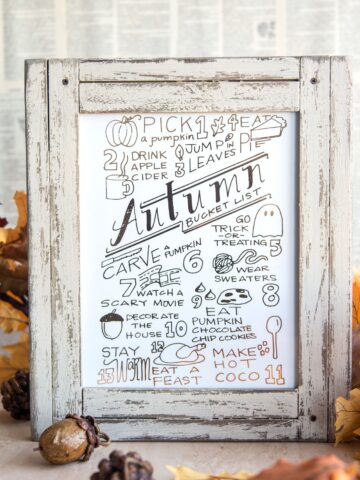 PICK 1 4 EAT
a pumpkin PIE
2 DRINK JUMP IN
APPLE 3 LEAVES
CIDER
Autumn
BUCKET LIST
GO
TRICK
-OR-
TREATING 5
CARVE A
PUMPKIN 6
7 WATCH A
SCARY MOVIE
WEAR
SWEATERS 8
9 EAT
PUMPKIN
CHOCOLATE
CHIP COOKIES
DECORATE
THE
HOUSE 10
STAY 12 MAKE
13 Warm EAT A HOT
FEAST COCO 11